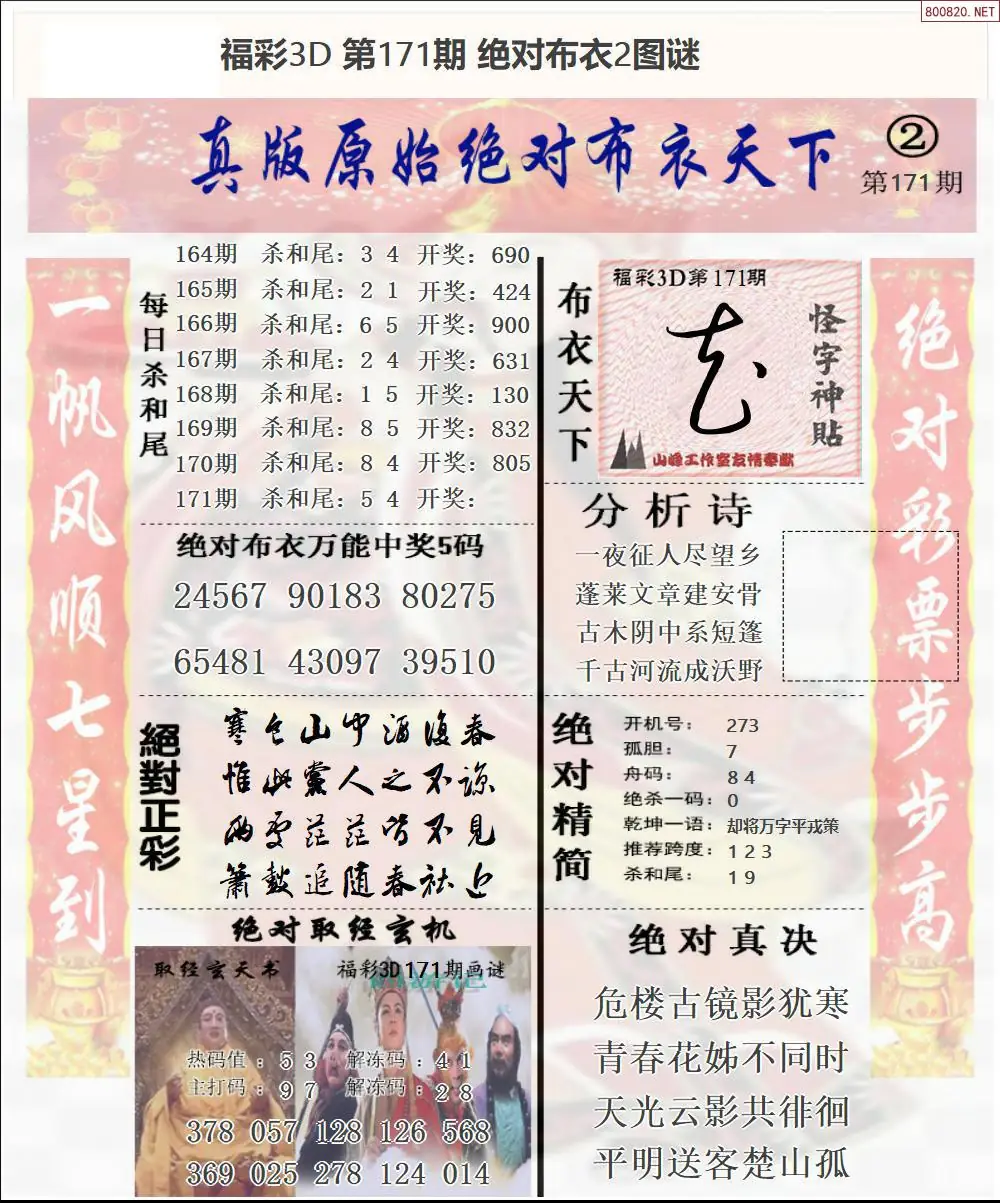 800820.NET
福彩3D 第171期 绝对布衣2图谜
真版原始绝对布衣天下
②
第171期
一帆风顺七星到
每日杀和尾
164期 杀和尾: 3 4 开奖: 690
165期 杀和尾: 2 1 开奖: 424
166期 杀和尾: 6 5 开奖: 900
167期 杀和尾: 2 4 开奖: 631
168期 杀和尾: 1 5 开奖: 130
169期 杀和尾: 8 5 开奖: 832
170期 杀和尾: 8 4 开奖: 805
171期 杀和尾: 5 4 开奖:
绝对布衣万能中奖5码
24567 90183 80275
65481 43097 39510
絕對正彩
寒食山中酒復春
惟此黨人之不諒
两处茫茫皆不見
簫鼓追随春社近
绝对取经玄机
取经玄天书
福彩3D171期画谜
热码值 : 5 3 解冻码 : 4 1
主打码 : 9 7 解冻码 : 2 8
378 057 128 126 568
369 025 278 124 014
布衣天下
福彩3D第171期
怪字神貼
山峰工作室友情奉献
分析诗
一夜征人尽望乡
蓬莱文章建安骨
古木阴中系短篷
千古河流成沃野
绝对精简
开机号: 273
孤胆: 7
舟码: 8 4
绝杀一码: 0
乾坤一语: 却将万字平戎策
推荐跨度: 1 2 3
杀和尾: 1 9
绝对真决
危楼古镜影犹寒
青春花姊不同时
天光云影共徘徊
平明送客楚山孤
绝对彩票步步高